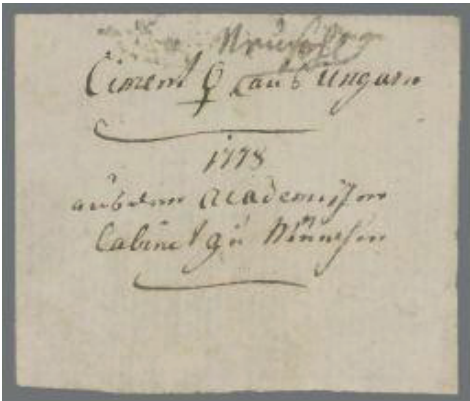 Ciment ♀ aus Ungarn
1778
aus dem Academischen
Cabinet zu München